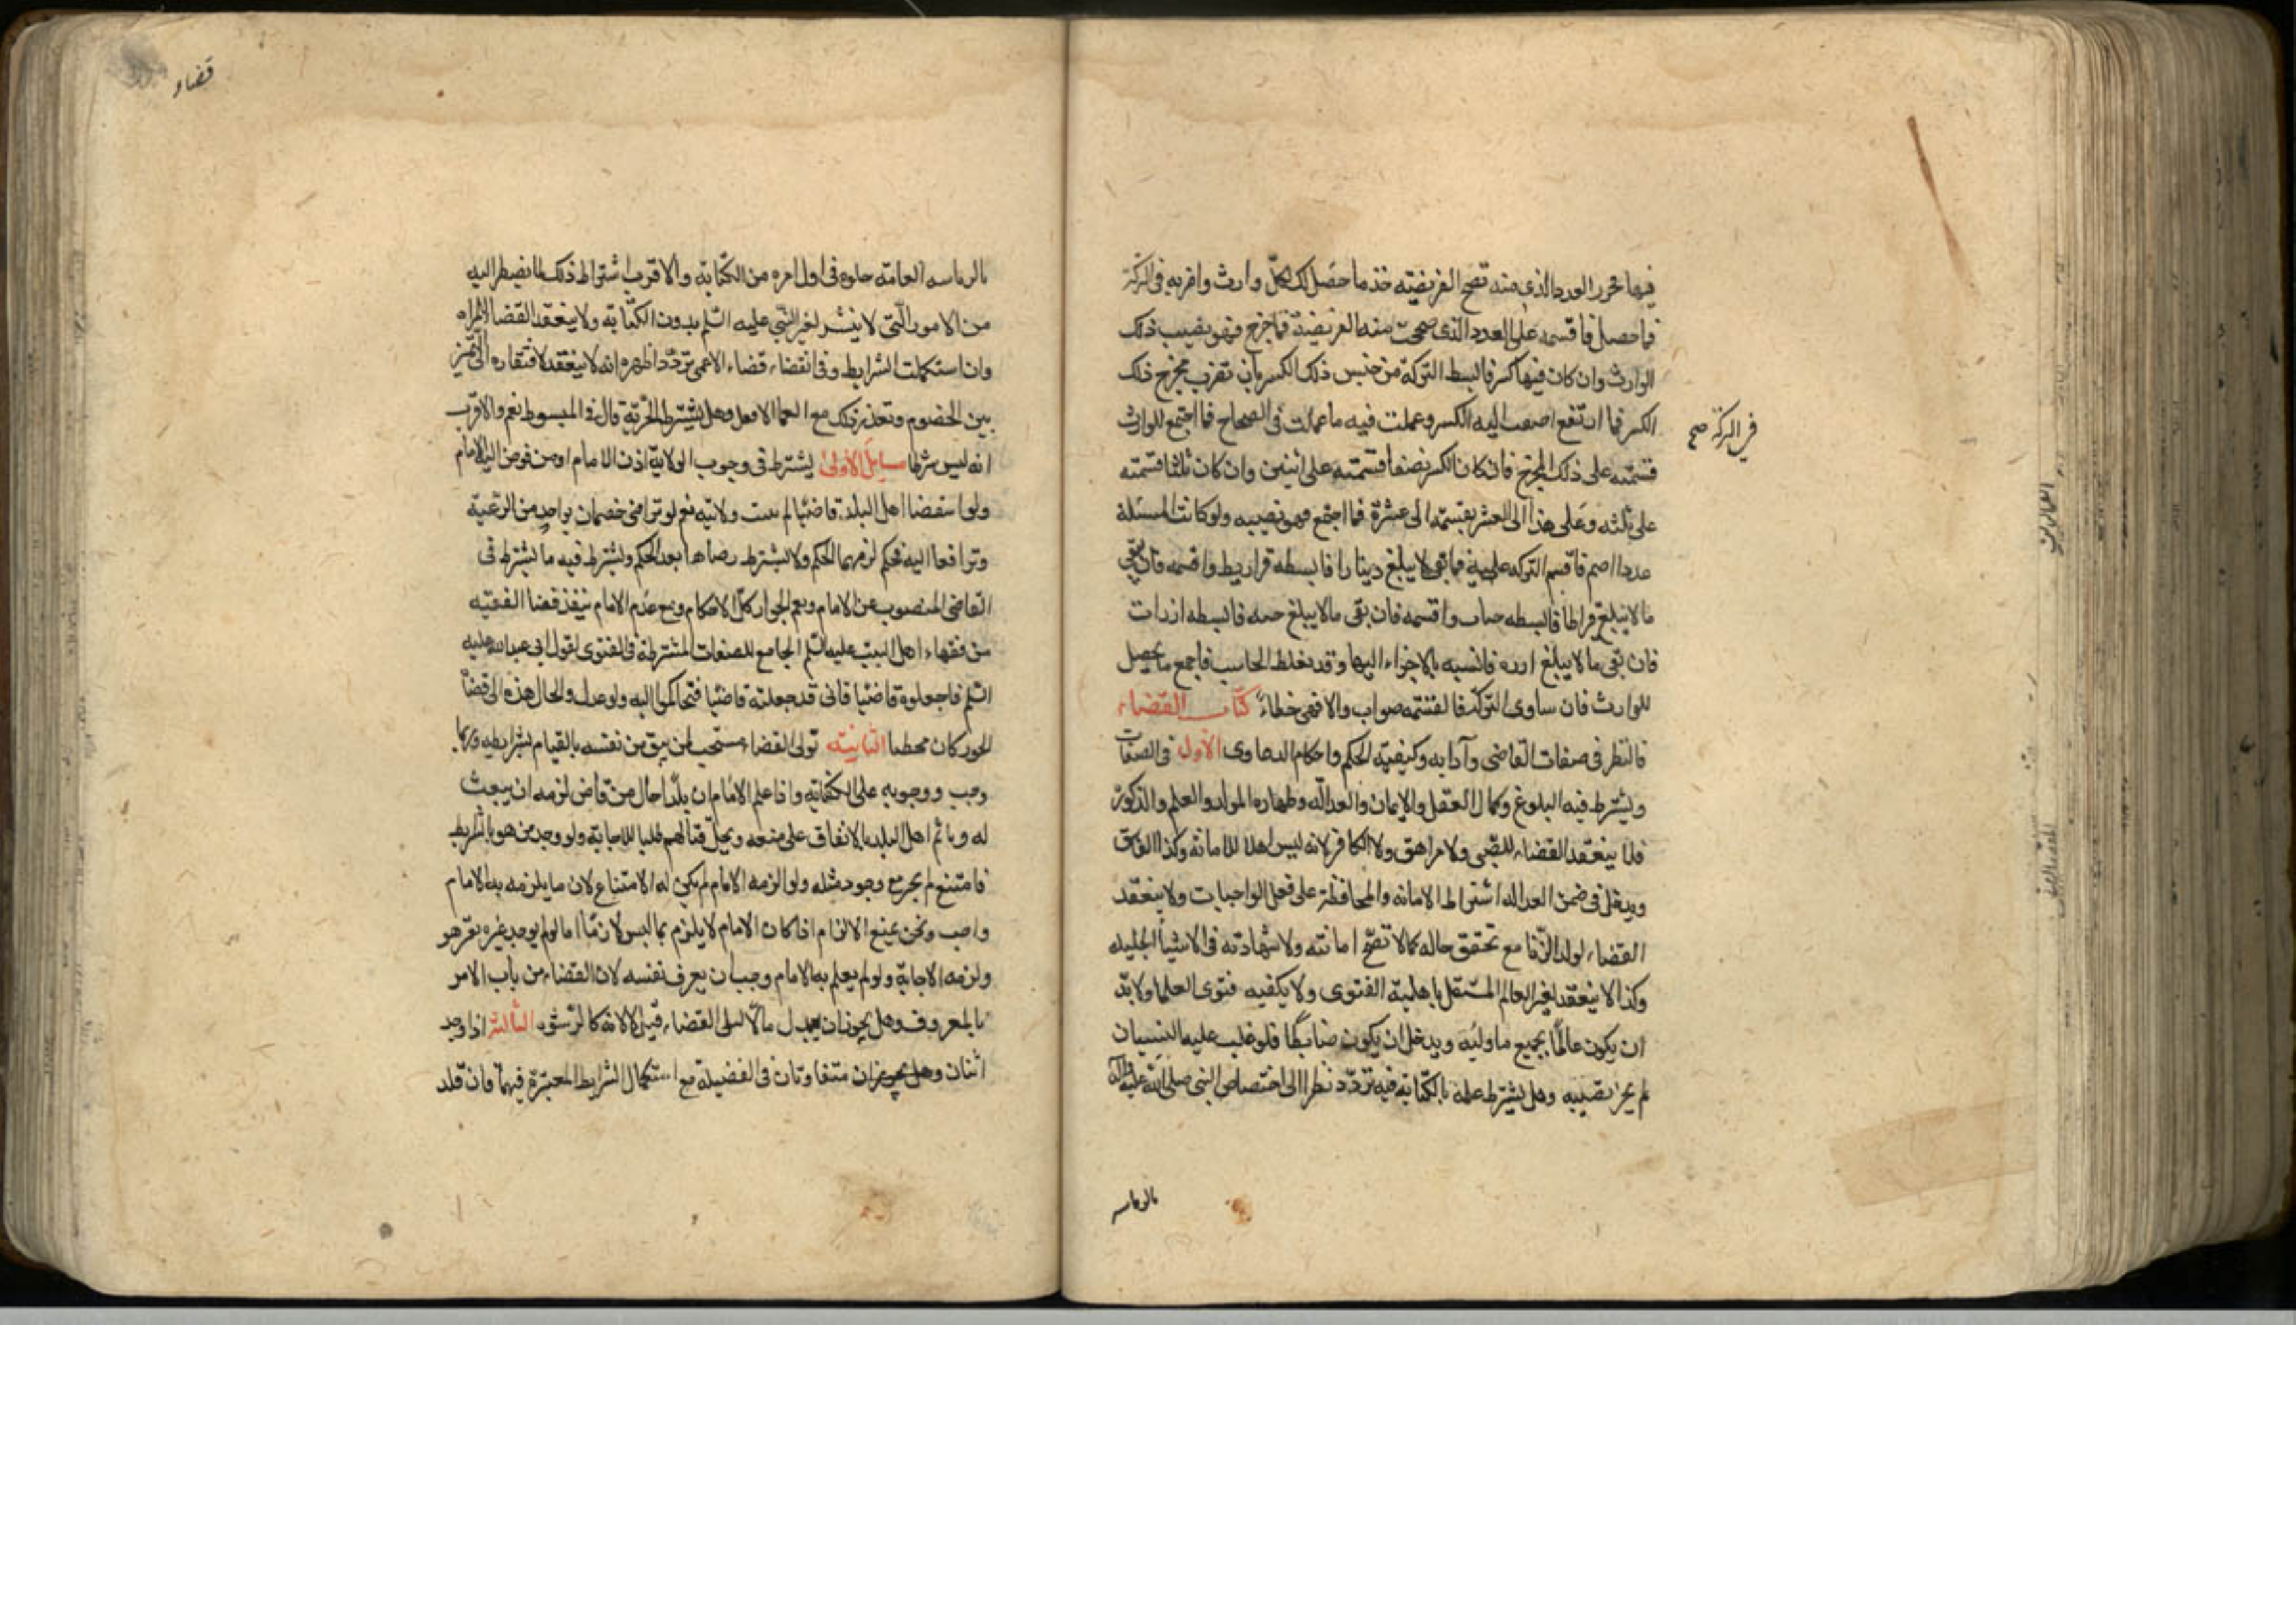 فيها فحرر العدد الذي منه تصح الفريضة ثم خذ ما حصل لكل وارث واضربه في التركة
فما حصل فاقسمه على العدد الذي صحت منه الفريضة فما خرج فهو نصيب ذلك
الوارث وان كان فيها كسر فابسط التركة من جنس ذلك الكسر بان تضرب مخرج ذلك
الكسر فما ارتفع اضفت اليه الكسر وعملت فيه ما عملت في الصحاح فما اجتمع للوارث
قسمته على ذلك المخرج فان كان الكسر نصفا قسمته على اثنين وان كان ثلثا قسمته
على ثلثه وعلى هذا الى العشر بقسمته الى عشرة فما اجتمع فهو نصيبه ولو كانت المسئلة
عددا اصم فاقسم التركه عليه فما بقي لا يبلغ دينارا فابسطه قراريط واقسمه فان بقي
ما لا يبلغ قراطا فابسطه حبات واقسمه فان بقى مالا يبلغ حبه فابسطه ارزات
فان بقى ما لا يبلغ ارزه فانسبه بالاجزاء اليها وقد يغلط الحاسب فاجمع ما يحصل
للوارث فان ساوى التركة فالقسمه صواب والا فهى خطاء كتاب القضاء
فالنظر في صفات القاضى وآدابه وكيفية الحكم واحكام الدعاوى الاول في الصفات
ويشترط فيه البلوغ وكمال العقل والايمان والعدالة وطهاره المولد والعلم والذكورة
فلا ينعقد القضاء للصبى ولا مراهق ولا الكافر لانه ليس اهلا للامانه وكذا الفاسق
ويدخل في ضمن العداله اشتراط الامانه والمحافظة على فعل الواجبات ولا ينعقد
القضاء لولد الزنا مع تحقق حاله كما لا تصح امانته ولا شهادته في الاشيا الجليله
وكذا لا ينعقد لغير العالم المستقل باهلية الفتوى ولا يكفيه فتوى العلما ولا بد
ان يكون عالما بجميع ما وليه ويدخل ان يكون ضابطا فلو غلب عليه النسيان
لم يجز نصبه وهل يشترط علمه بالكتابة فيه تردد نظرا الى اختصاص النبي صلى الله عليه واله
في التركة صح
بالرياسه
قضاء
بالرياسه العامه خلوه في اول امره من الكتابة والاقرب اشتراط ذلك لما يضطر اليه
من الامور التي لا يتيسر لغير النبي عليه السلم بدون الكتابة ولا ينعقد القضا لامراه
وان استكملت الشرايط وفي انقضاء قضاء الاعمى تردد اظهره انه لا ينعقد لافتقاره الى التميز
بين الخصوم وتعذر ذلك مع العما الا فعل وهل يشترط الحرية قال في المبسوط نعم والاقرب
انه ليس شرطا مسايل الاولى يشترط في وجوب الولاية اذن الامام او من فوض اليه الامام
ولو استقضا اهل البلد قاضيا لم يثبت ولايته نعم لو تراضى خصمان بواحد من الرعية
وترافعا اليه فحكم لزمهما الحكم ولا يشترط رضاهما بعد الحكم ويشترط فيه ما يشترط في
القاضى المنصوب عن الامام ويعم الجواز كل الاحكام ومع عدم الامام ينفذ قضا الفقيه
من فقهاء اهل البيت عليهم السلم الجامع للصفات المشترطة في الفتوى لقول ابي عبد الله عليه
السلم فاجعلوه قاضيا فانى قد جعلته قاضيا فتحاكموا اليه ولو عدل والحال هذه الى قضاة
الجور كان مخطيا الثانية تولى القضاء مستحب لمن يثق من نفسه بالقيام بشرايطه وربما
وجب ووجوبه على الكفاية واذا علم الامام ان بلدا خال من قاض لزمه ان يبعث
له وياثم اهل البلد بالاتفاق على منعه ويحل قتالهم طلبا للاجابة ولو وجد من هو بالشرايط
فامتنع لم يجبر مع وجود مثله ولو الزمه الامام لم يكن له الامتناع لان ما يلزمه به الامام
واجب ونحن نمنع الالزام اذا كان الامام لا يلزم بما ليس لازما اما لو لم يوجد غيره تعين هو
ولزمه الاجابة ولو لم يعلم به الامام وجب ان يعرف نفسه لان القضاء من باب الامر
بالمعروف وهل يجوز ان يبدل مالا ليلى القضاء قيل لا لانه كالرشوة الثالثة اذا وجد
اثنان متفاوتان في الفضيلة مع استكمال الشرايط المعتبرة فيهما فان قلد